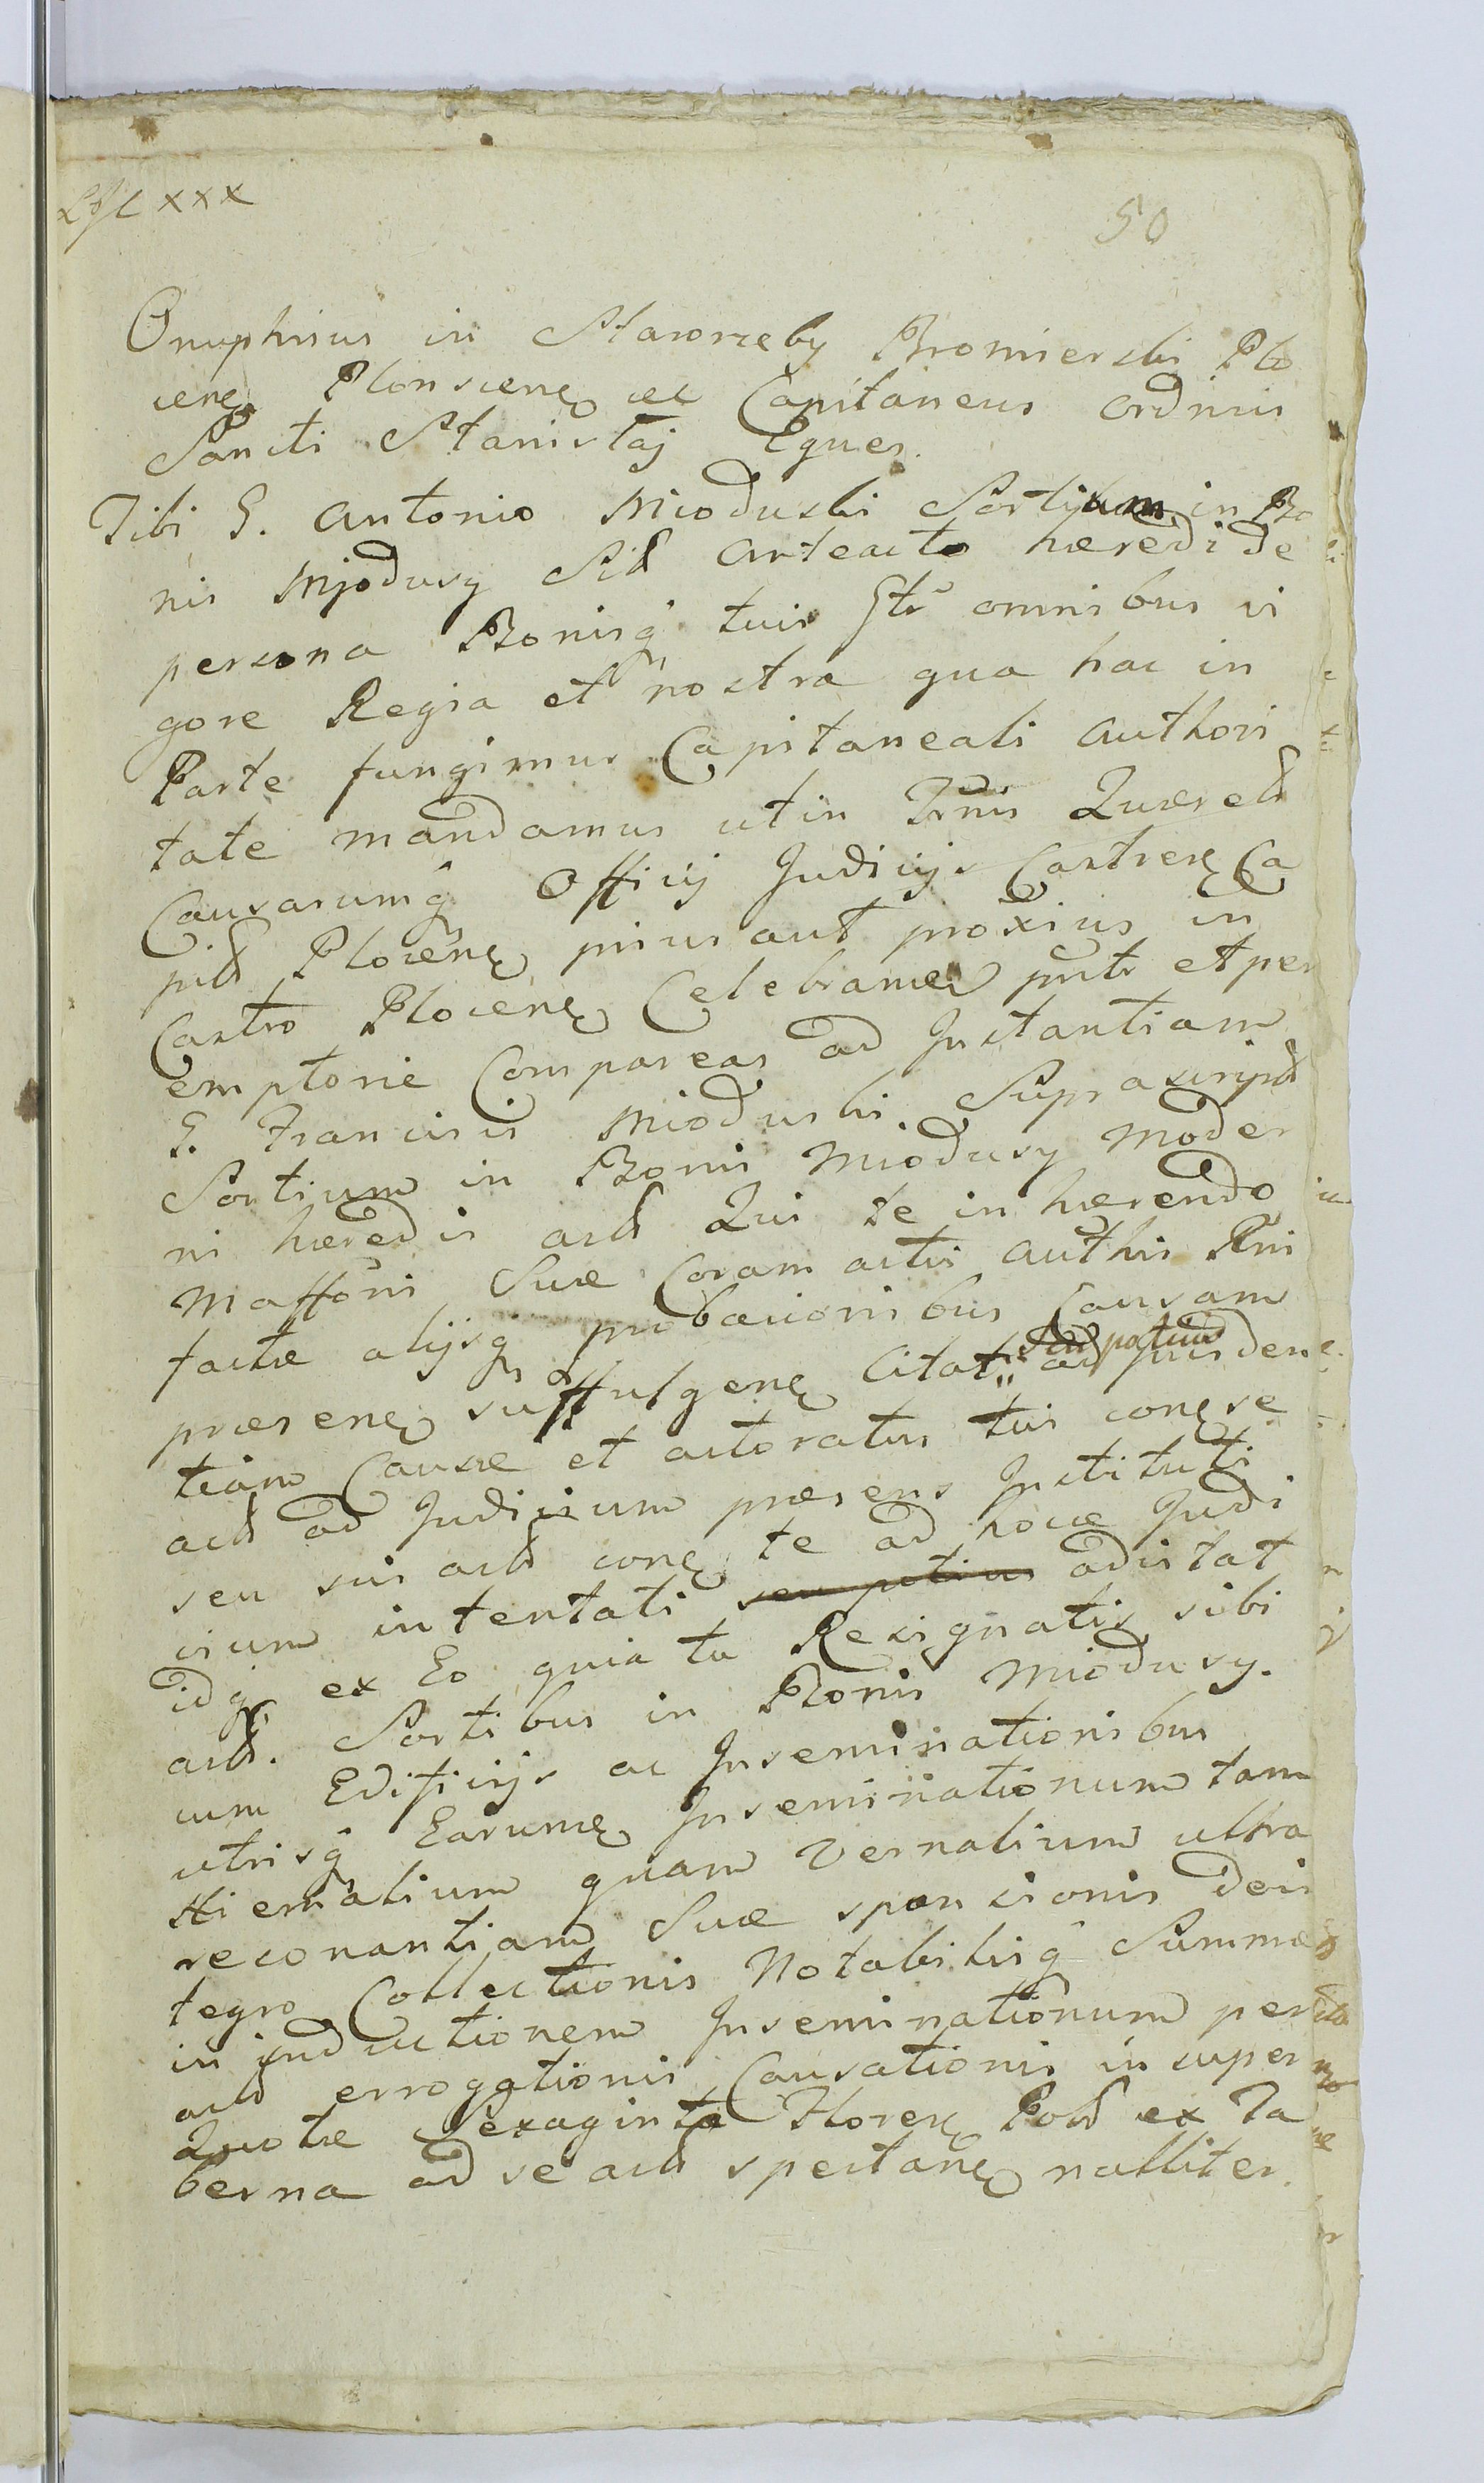 50
Onuphrius in Starorzeby Bromierski Plo
cen Plonscen etc Capitaneus ordinis
Sancti Stanislaj Eques.
Tibi G. Antonio Mioduski Sortium in Bo
nis Mjodusy Sid arteacto hæredi de
persona Bonisq tuis Gtr omnibus vi
gore Regia et nostra qua hac in
Parte fungimur Capitaneali Authori
tate mandamus ut in Trnis Quereld
Causarumq Officij Judicijs Castren Ca
pitd Plocen prius aut proxius in
Castro Plocen Celebrand prtr et per
emptorie Compareas ad Instantiam
G. Francisci Mioduski Suprascript
Sortium in Bonis Miodusy Moder
ni hæredis actd Qui te in hærendo
Maffoni Suæ Coram actis Authis Rni
factæ alijsq probationibus Causam
seu potius
præsen suffulgen Citat ad prisden
tiam Causæ et actoratus tui conqse
actd ad Judicium præsens Instituti
seu sui actd conq te ad hocce Judi
cium intentati seu potius adcitat
idq ex Eo quia tu Resignatis sibi
actd. Sortibus in Bonis Miodusy.
cum Edificijs ac Inseminationibus
utrisq Earumq Inseminationum tam
Hiemalium quam Vernalium ultra
reconantiam Suæ sponsionis dein
tegro Collectionis Notabilisq Summæ
in inductionem Inseminationum per
actd errogationis Causationis insuper
Quotæ Sexaginta Floren Pold ex Ta
berna ad se actd spectan nulliter.